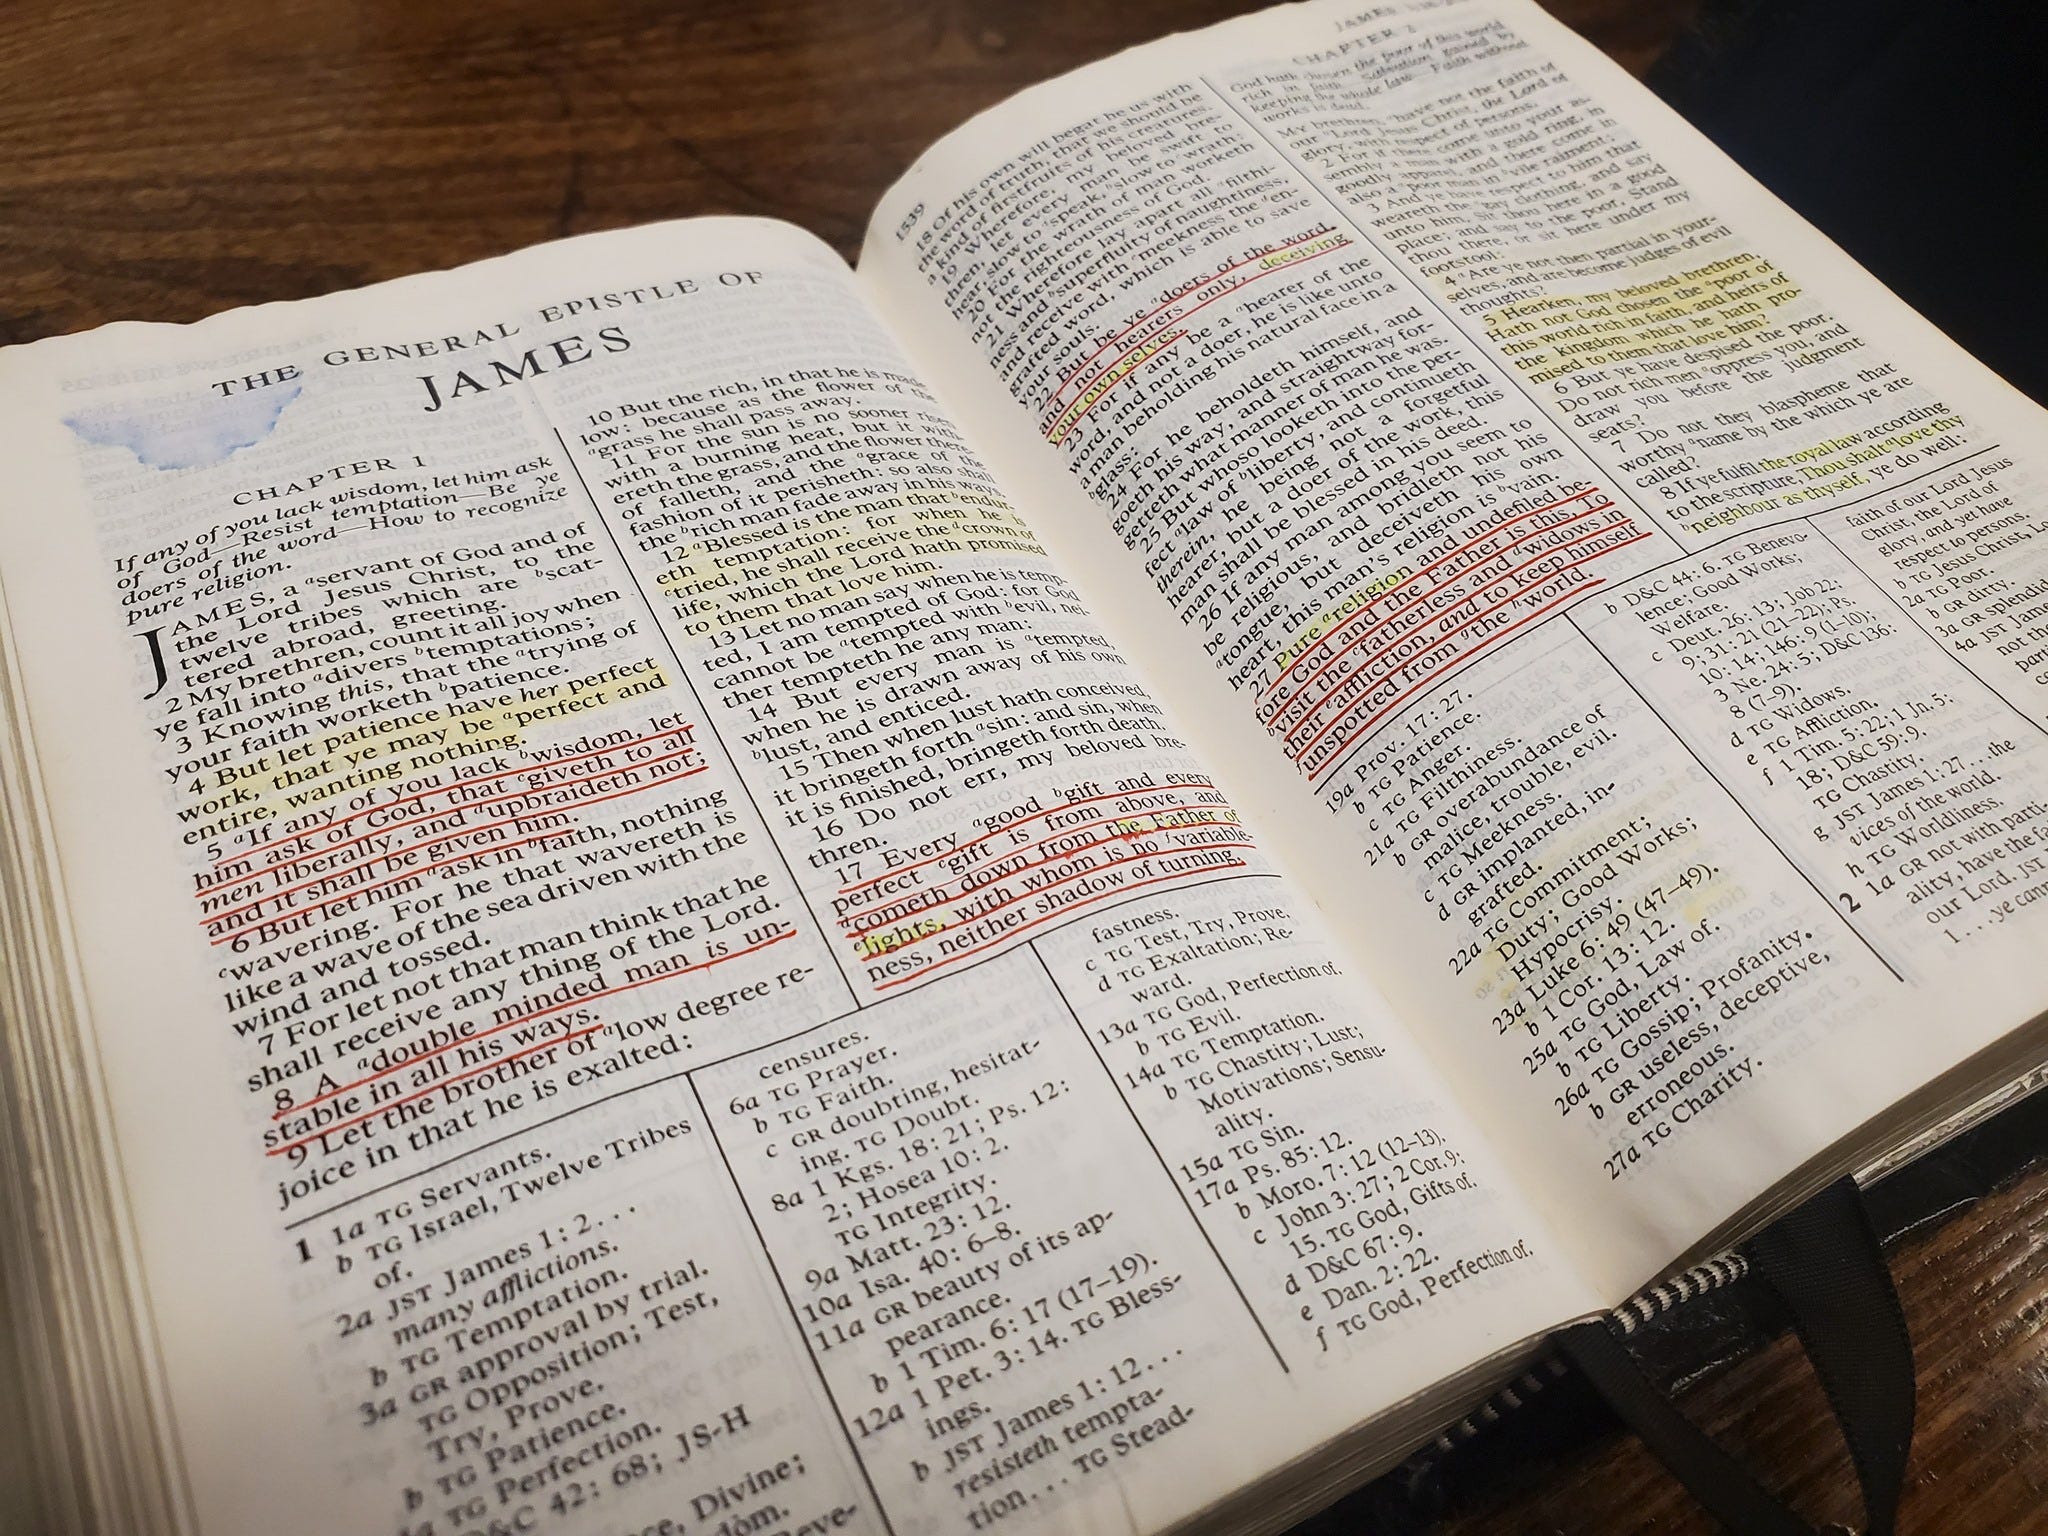 THE GENERAL EPISTLE OF
JAMES
CHAPTER 1
If any of you lack wisdom, let him ask
of God—Resist temptation—Be ye
doers of the word—How to recognize
pure religion.
JAMES, a aservant of God and of
the Lord Jesus Christ, to the
twelve tribes which are bscat-
tered abroad, greeting.
2 My brethren, count it all joy when
ye fall into adivers btemptations;
3 Knowing this, that the atrying of
your faith worketh bpatience.
4 But let patience have her perfect
work, that ye may be aperfect and
entire, wanting nothing.
5 aIf any of you lack bwisdom, let
him ask of God, that cgiveth to all
men liberally, and dupbraideth not;
and it shall be given him.
6 But let him aask in bfaith, nothing
cwavering. For he that wavereth is
like a wave of the sea driven with the
wind and tossed.
7 For let not that man think that he
shall receive any thing of the Lord.
8 A adouble minded man is un-
stable in all his ways.
9 Let the brother of alow degree re-
joice in that he is exalted:
10 But the rich, in that he is made
low: because as the flower of the
agrass he shall pass away.
11 For the sun is no sooner risen
with a burning heat, but it with-
ereth the grass, and the flower there-
of falleth, and the agrace of the
fashion of it perisheth: so also shall
the brich man fade away in his ways.
12 aBlessed is the man that bendur-
eth temptation: for when he is
ctried, he shall receive the dcrown of
life, which the Lord hath promised
to them that love him.
13 Let no man say when he is temp-
ted, I am tempted of God: for God
cannot be atempted with bevil, nei-
ther tempteth he any man:
14 But every man is atempted,
when he is drawn away of his own
blust, and enticed.
15 Then when lust hath conceived,
it bringeth forth asin: and sin, when
it is finished, bringeth forth death.
16 Do not err, my beloved bre-
thren.
17 Every agood bgift and every
perfect cgift is from above, and
dcometh down from the Father of
elights, with whom is no fvariable-
ness, neither shadow of turning.
1 1a TG Servants.
b TG Israel, Twelve Tribes
of.
2a JST James 1: 2...
many afflictions.
b TG Temptation.
3a GR approval by trial.
TG Opposition; Test,
Try, Prove.
b TG Patience.
TG Perfection.
D&C 42: 68; JS-H
Divine;
censures.
6a TG Prayer.
b TG Faith.
c GR doubting, hesitat-
ing. TG Doubt.
8a 1 Kgs. 18: 21; Ps. 12:
2; Hosea 10: 2.
TG Integrity.
9a Matt. 23: 12.
10a Isa. 40: 6–8.
11a GR beauty of its ap-
pearance.
b 1 Tim. 6: 17 (17–19).
12a 1 Pet. 3: 14. TG Bless-
ings.
b JST James 1: 12...
resisteth tempta-
tion... TG Stead-
fastness.
c TG Test, Try, Prove.
d TG Exaltation; Re-
ward.
13a TG God, Perfection of.
b TG Evil.
14a TG Temptation.
b TG Chastity; Lust;
Motivations; Sensu-
ality.
15a TG Sin.
17a Ps. 85: 12.
b Moro. 7: 12 (12–13).
c John 3: 27; 2 Cor. 9:
15. TG God, Gifts of.
d D&C 67: 9.
e Dan. 2: 22.
f TG God, Perfection of.
1539
18 Of his own will begat he us with
the word of truth, that we should be
a kind of firstfruits of his creatures.
19 Wherefore, my beloved bre-
thren, let every man be swift to
hear, slow to aspeak, bslow to cwrath:
20 For the wrath of man worketh
not the righteousness of God.
21 Wherefore lay apart all afilthi-
ness and bsuperfluity of naughtiness,
and receive with cmeekness the den-
grafted word, which is able to save
your souls.
22 But be ye adoers of the word,
and not hearers only, deceiving
your own selves.
23 For if any be a ahearer of the
word, and not a doer, he is like unto
a man beholding his natural face in a
bglass:
24 For he beholdeth himself, and
goeth his way, and straightway for-
getteth what manner of man he was.
25 But whoso looketh into the per-
fect alaw of bliberty, and continueth
therein, he being not a forgetful
hearer, but a doer of the work, this
man shall be blessed in his deed.
26 If any man among you seem to
be religious, and bridleth not his
atongue, but deceiveth his own
heart, this man's religion is bvain.
27 Pure areligion and undefiled be-
fore God and the Father is this, To
bvisit the cfatherless and dwidows in
their eaffliction, and to keep himself
funspotted from gthe hworld.
19a Prov. 17: 27.
b TG Patience.
c TG Anger.
21a TG Filthiness.
b GR overabundance of
malice, trouble, evil.
c TG Meekness.
d GR implanted, in-
grafted.
22a TG Commitment;
Duty; Good Works;
Hypocrisy.
23a Luke 6: 49 (47–49).
b 1 Cor. 13: 12.
25a TG God, Law of.
b TG Liberty.
26a TG Gossip; Profanity.
b GR useless, deceptive,
erroneous.
27a TG Charity.
JAMES
CHAPTER 2
God hath chosen the poor of this world
rich in faith—Salvation gained by
keeping the whole law—Faith without
works is dead.
My brethren, ahave not the faith of
our bLord Jesus Christ, the Lord of
glory, with respect of persons.
2 For if there come unto your as-
sembly a man with a gold ring, in
goodly apparel, and there come in
also a apoor man in bvile raiment;
3 And ye have respect to him that
weareth the agay clothing, and say
unto him, Sit thou here in a good
place; and say to the poor, Stand
thou there, or sit here under my
footstool:
4 aAre ye not then partial in your-
selves, and are become judges of evil
thoughts?
5 Hearken, my beloved brethren,
Hath not God chosen the apoor of
this world rich in faith, and heirs of
the kingdom which he hath pro-
mised to them that love him?
6 But ye have despised the poor.
Do not rich men aoppress you, and
draw you before the judgment
seats?
7 Do not they blaspheme that
worthy aname by the which ye are
called?
8 If ye fulfil the royal law according
to the scripture, Thou shalt alove thy
bneighbour as thyself, ye do well:
b D&C 44: 6. TG Benevo-
lence; Good Works;
Welfare.
c Deut. 26: 13; Job 22:
9; 31: 21 (21–22); Ps.
10: 14; 146: 9 (1–10);
3 Ne. 24: 5; D&C 136:
8 (7–9).
d TG Widows.
e TG Affliction.
f 1 Tim. 5: 22; 1 Jn. 5:
18; D&C 59: 9.
TG Chastity.
g JST James 1: 27... the
vices of the world.
h TG Worldliness.
2 1a GR not with parti-
ality, have the
our Lord. JST
1...ye
faith of our Lord Jesus
Christ, the Lord of
glory, and yet have
respect to persons.
b TG Jesus Christ,
2a TG Poor.
b GR dirty.
3a GR splendid
4a JST James
not